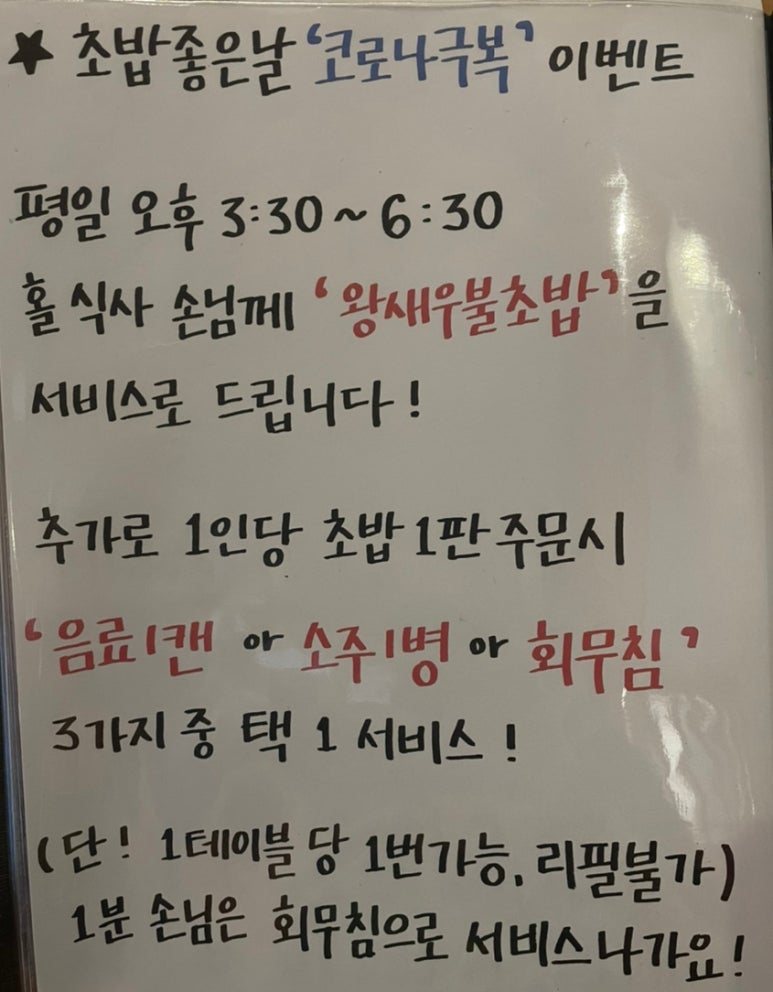 ★ 초밥좋은날 '코로나극복' 이벤트
평일 오후 3:30~6:30
홀 식사 손님께 '왕새우불초밥'을
서비스로 드립니다!
추가로 1인당 초밥 1판 주문시
'음료1캔 or 소주1병 or 회무침'
3가지 중 택 1 서비스!
(단! 1테이블 당 1번가능, 리필불가)
1분 손님은 회무침으로 서비스나가요!